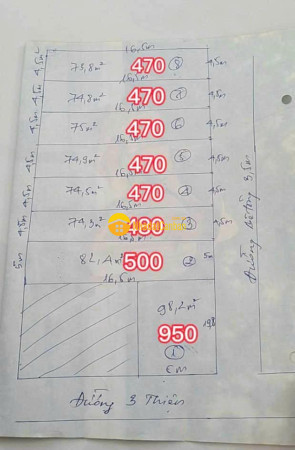 16,5m
4,5m 73,8m² 470 8 4,5m
16,5m
4,5m 74,8m² 470 7 4,5m
16,5m
4,5m 75m² 470 6 4,5m
16,5m
4,5m 74,9m² 470 5 4,5m
16,5m
4,5m 74,5m² 470 4 4,5m
16,5m
4,5m 74,3m² 480 3 4,5m
5m 82,4m² 500 2 5m
16,5m
98,2m²
950
1
6m
Đường bê tông 3,5m
Đường 3 Thiện